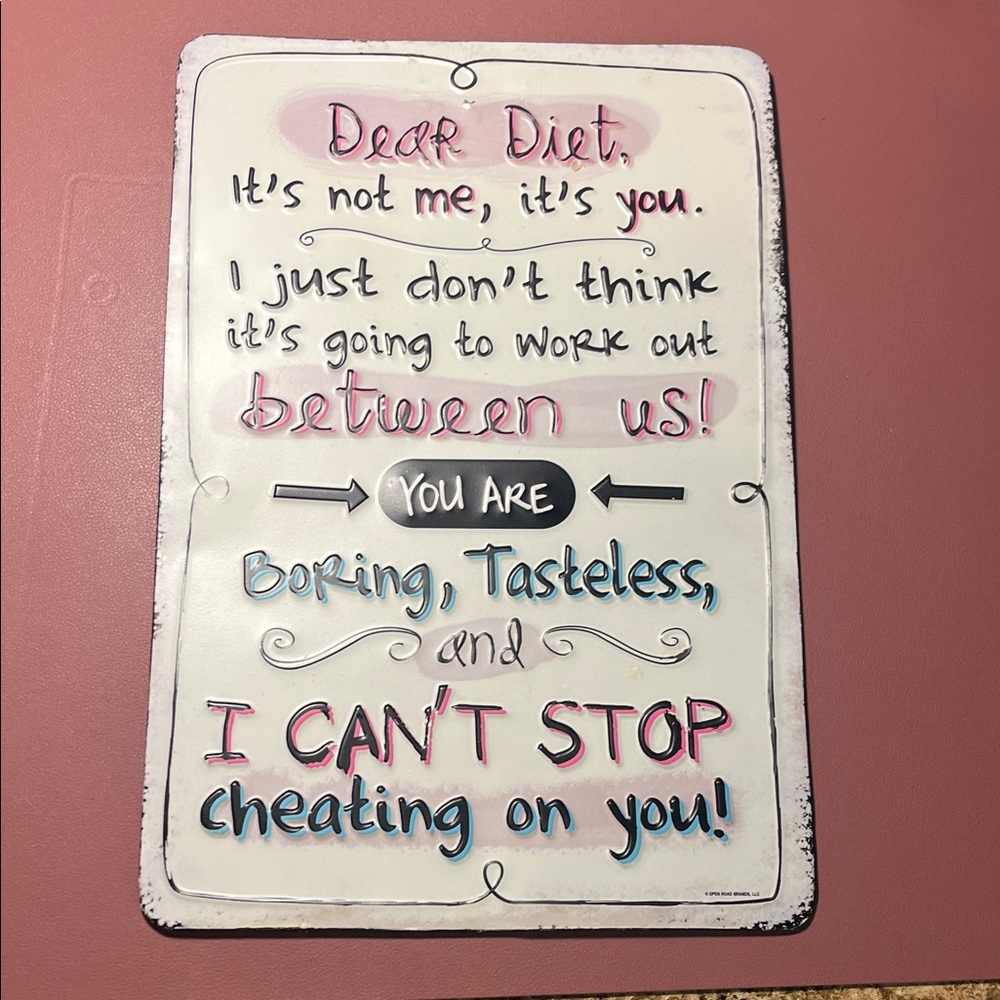 Dear Diet,
It's not me, it's you.
I just don't think
it's going to work out
between us!
YOU ARE
Boring, Tasteless,
and
I CAN'T STOP
cheating on you!
© OPEN ROAD BRANDS, LLC